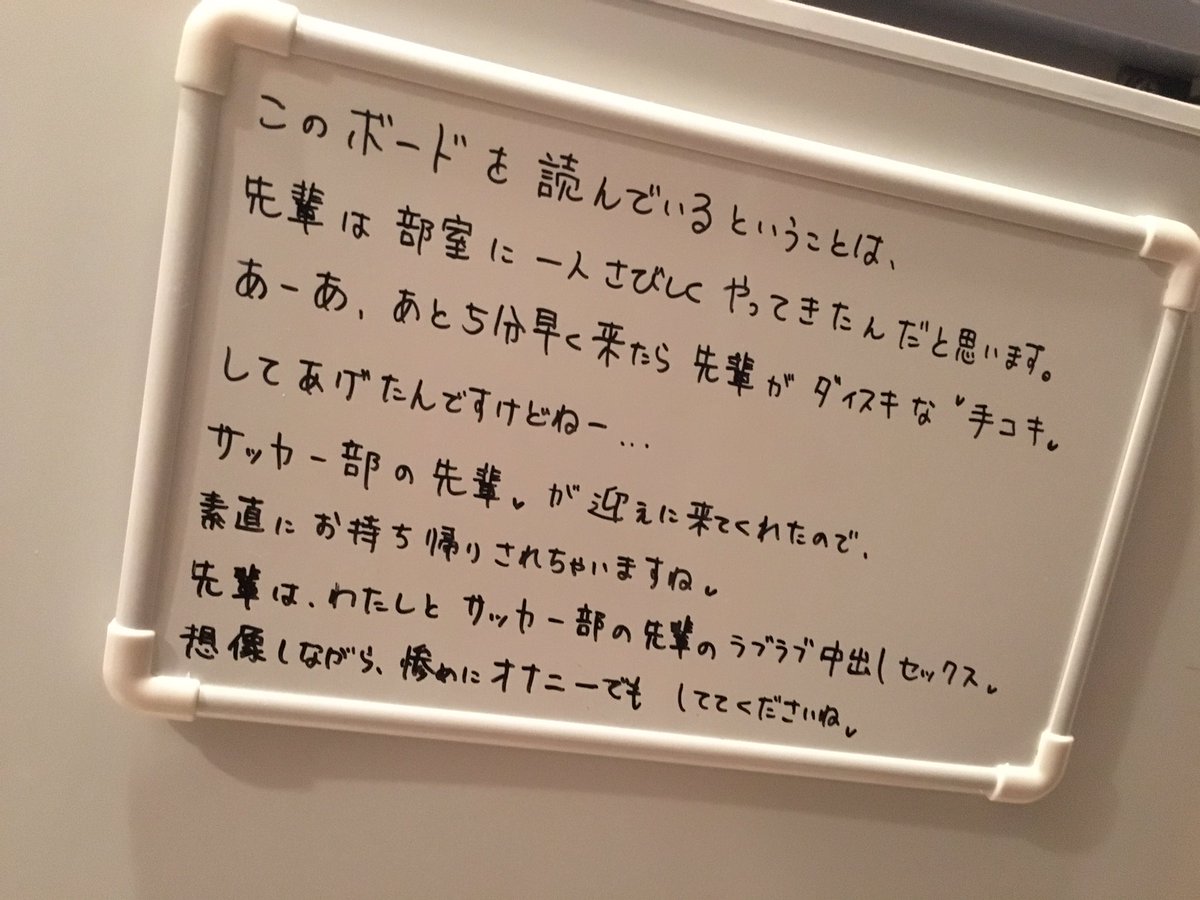 このボードを読んでいるということは、
先輩は部室に一人さびしくやってきたんだと思います。
あーあ、あと5分早く来たら先輩がダイスキな♥手コキ♥
してあげたんですけどねー…
サッカー部の先輩♥が迎えに来てくれたので、
素直にお持ち帰りされちゃいますね♥
先輩は、わたしとサッカー部の先輩のラブラブ中出しセックス♥
想像しながら、惨めにオナニーでもしててくださいね♥